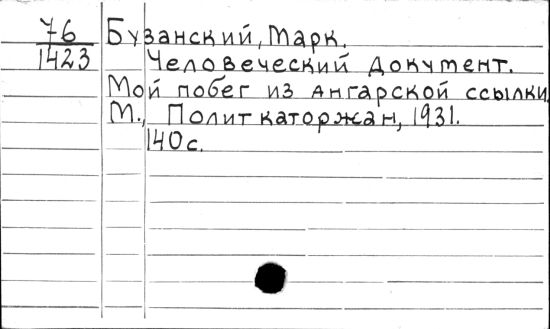 76
1423
Бузанский, Марк.
Человеческий документ.
Мой побег из ангарской ссылки.
М., Политкаторжан, 1931.
140 с.